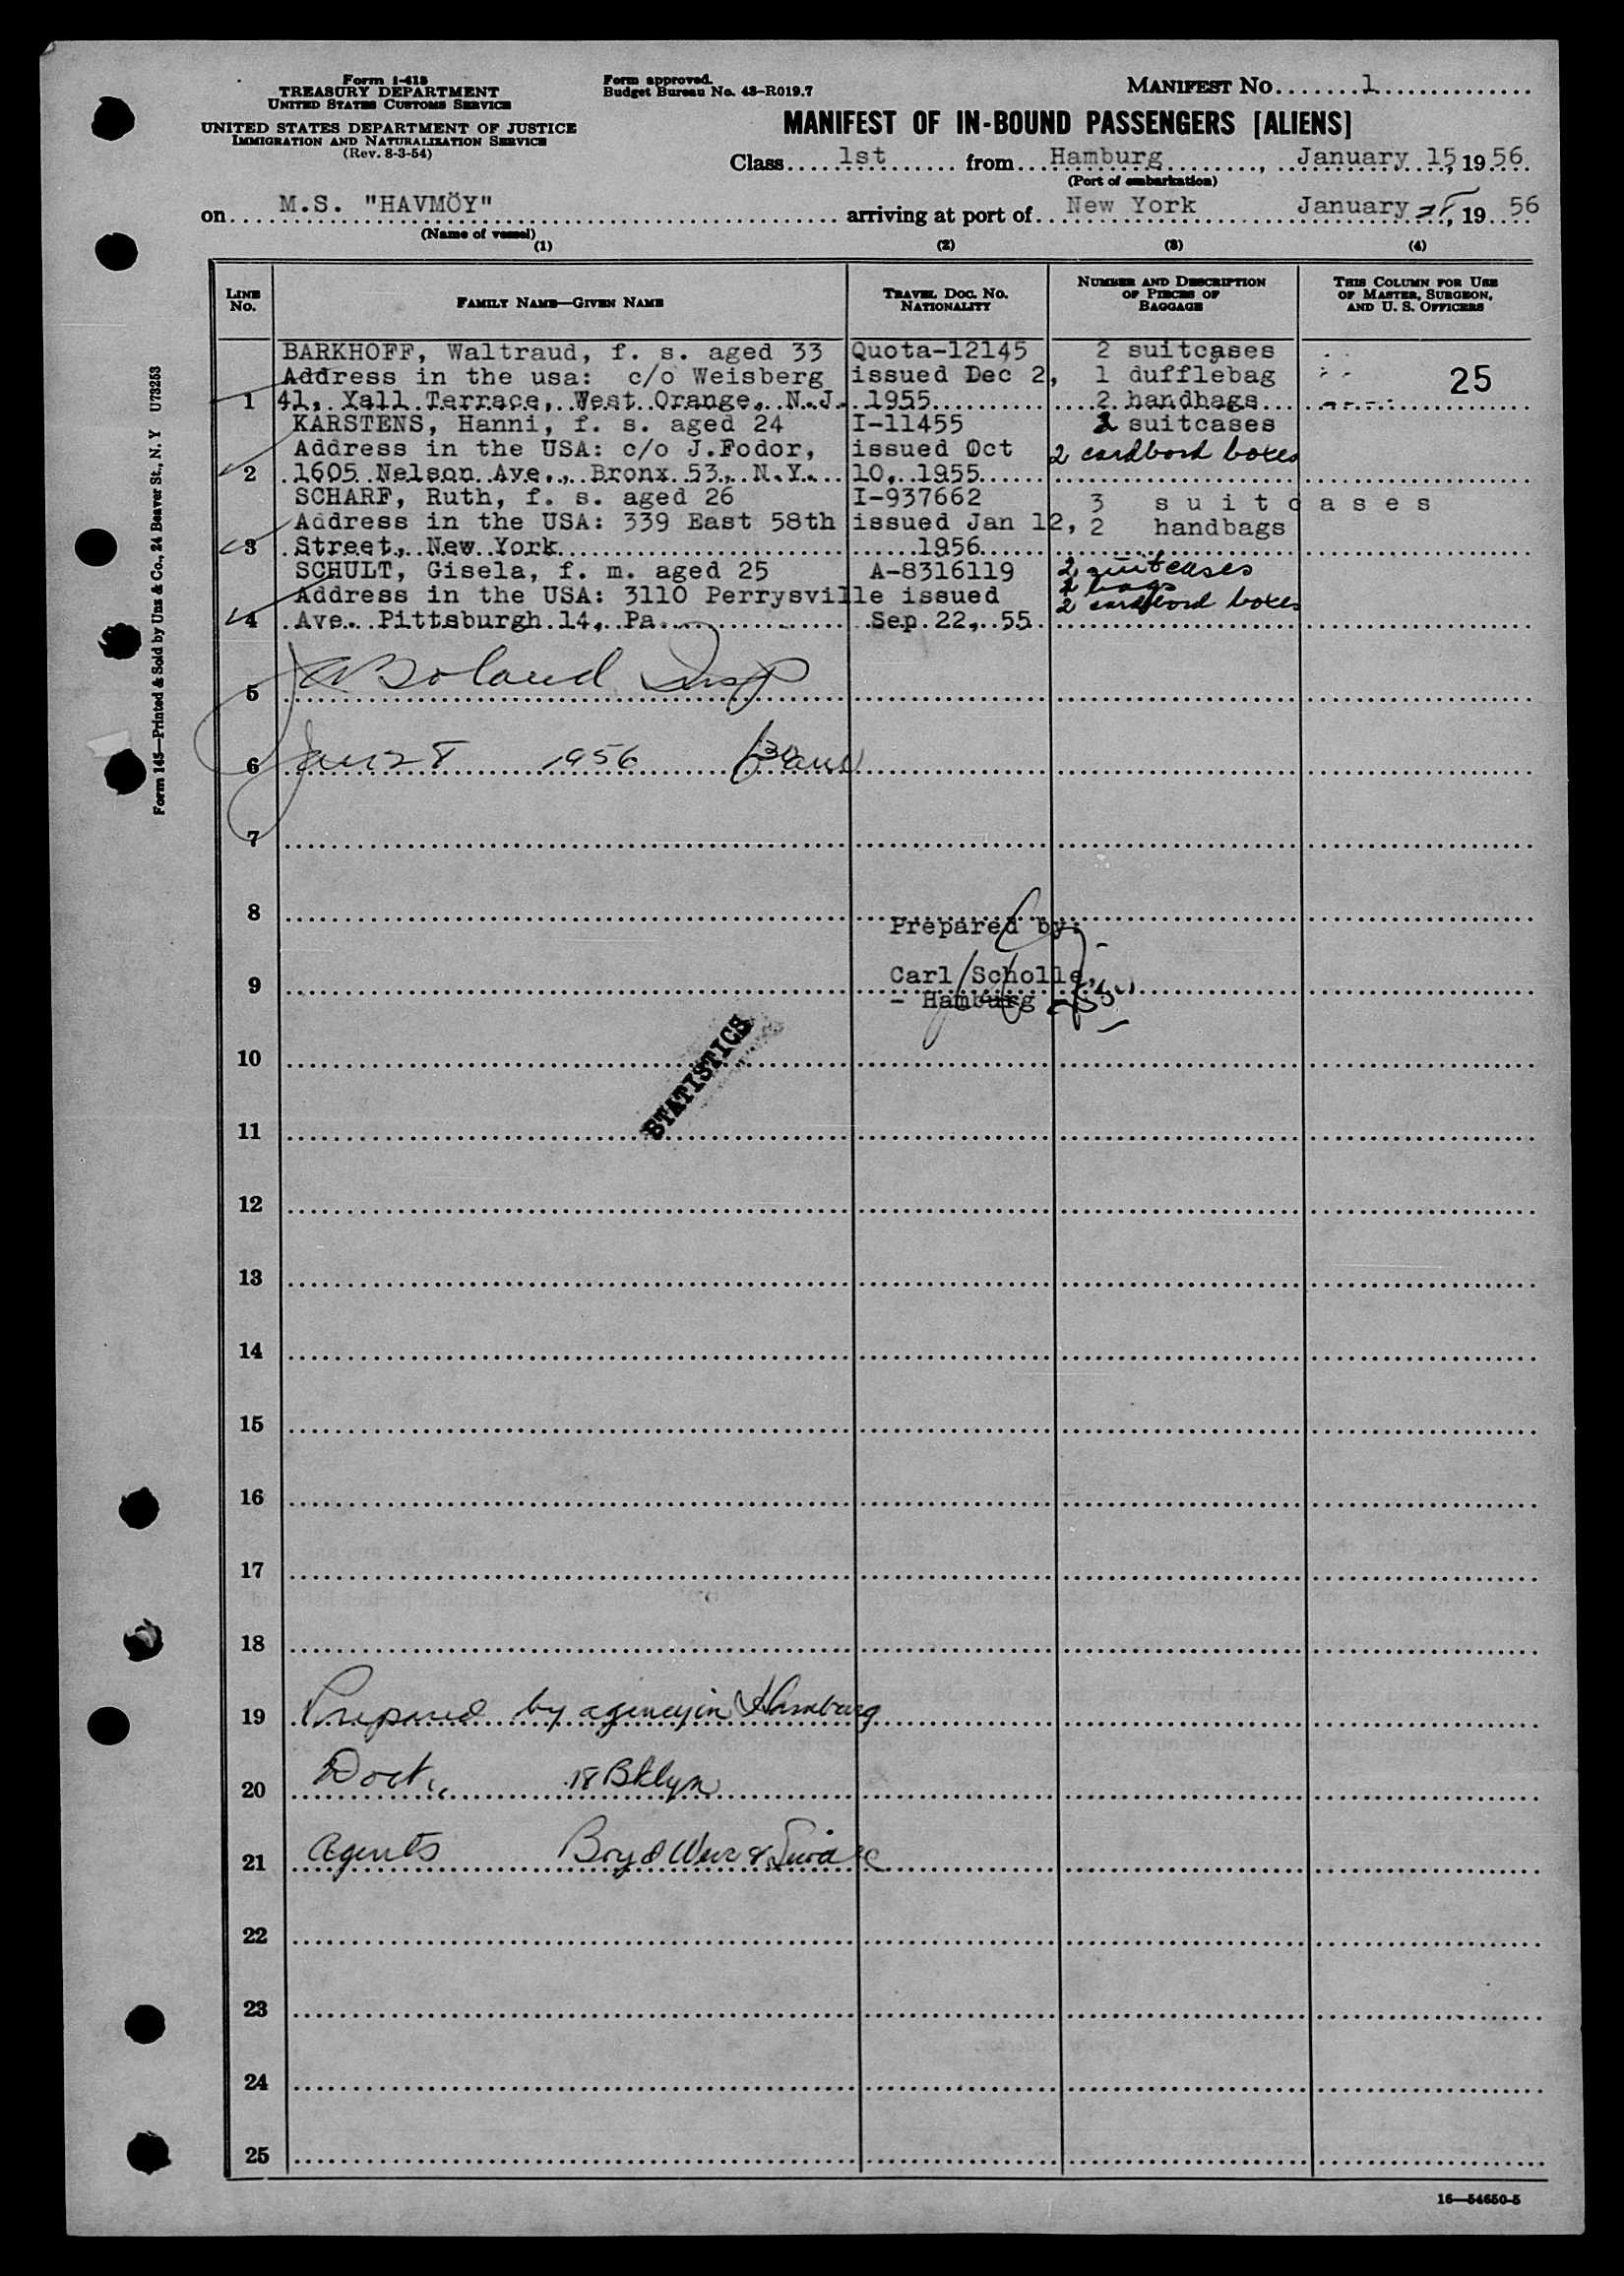 Form I-418
TREASURY DEPARTMENT
UNITED STATES CUSTOMS SERVICE
UNITED STATES DEPARTMENT OF JUSTICE
IMMIGRATION AND NATURALIZATION SERVICE
(Rev. 8-3-54)
Form approved.
Budget Bureau No. 43-R019.7
MANIFEST No. 1
MANIFEST OF IN-BOUND PASSENGERS [ALIENS]
Class 1st from Hamburg, January 15, 1956
(Port of embarkation)
on M.S. "HAVMÖY" arriving at port of New York January 28, 19 56
(Name of vessel)
(1) (2) (3) (4)
LINE No. FAMILY NAME—GIVEN NAME TRAVEL DOC. No. NATIONALITY NUMBER AND DESCRIPTION OF PIECES OF BAGGAGE THIS COLUMN FOR USE OF MASTER, SURGEON, AND U. S. OFFICERS
BARKHOFF, Waltraud, f. s. aged 33 Quota-12145 2 suitcases
Address in the usa: c/o Weisberg issued Dec 2, 1 dufflebag 25
1 41, Yall Terrace, West Orange, N.J. 1955 2 handbags
KARSTENS, Hanni, f. s. aged 24 I-11455 2 suitcases
Address in the USA: c/o J.Fodor, issued Oct 2 cardbord boxes
2 1605 Nelson Ave., Bronx 53, N.Y. 10, 1955
SCHARF, Ruth, f. s. aged 26 I-937662 3 s u i t c a s e s
Address in the USA: 339 East 58th issued Jan 12, 2 handbags
3 Street, New York 1956
SCHULT, Gisela, f. m. aged 25 A-8316119 2 suitcases
2 bags
Address in the USA: 3110 Perrysville issued 2 cardbord boxes
4 Ave. Pittsburgh 14, Pa. Sep. 22, 55
5 Boland Insp
6 Jan 28 1956
7
8
Prepared by:
Carl Scholle,
9
- Hamburg -
STATISTICS
10
11
12
13
14
15
16
17
18
19 Prepared by agency in Hamburg
20 Dock 18 Bklyn
21 Agents Boyd Weir &
22
23
24
25
16—54650-5
Form 145—Printed & Sold by Unz & Co., 24 Beaver St., N. Y U73253